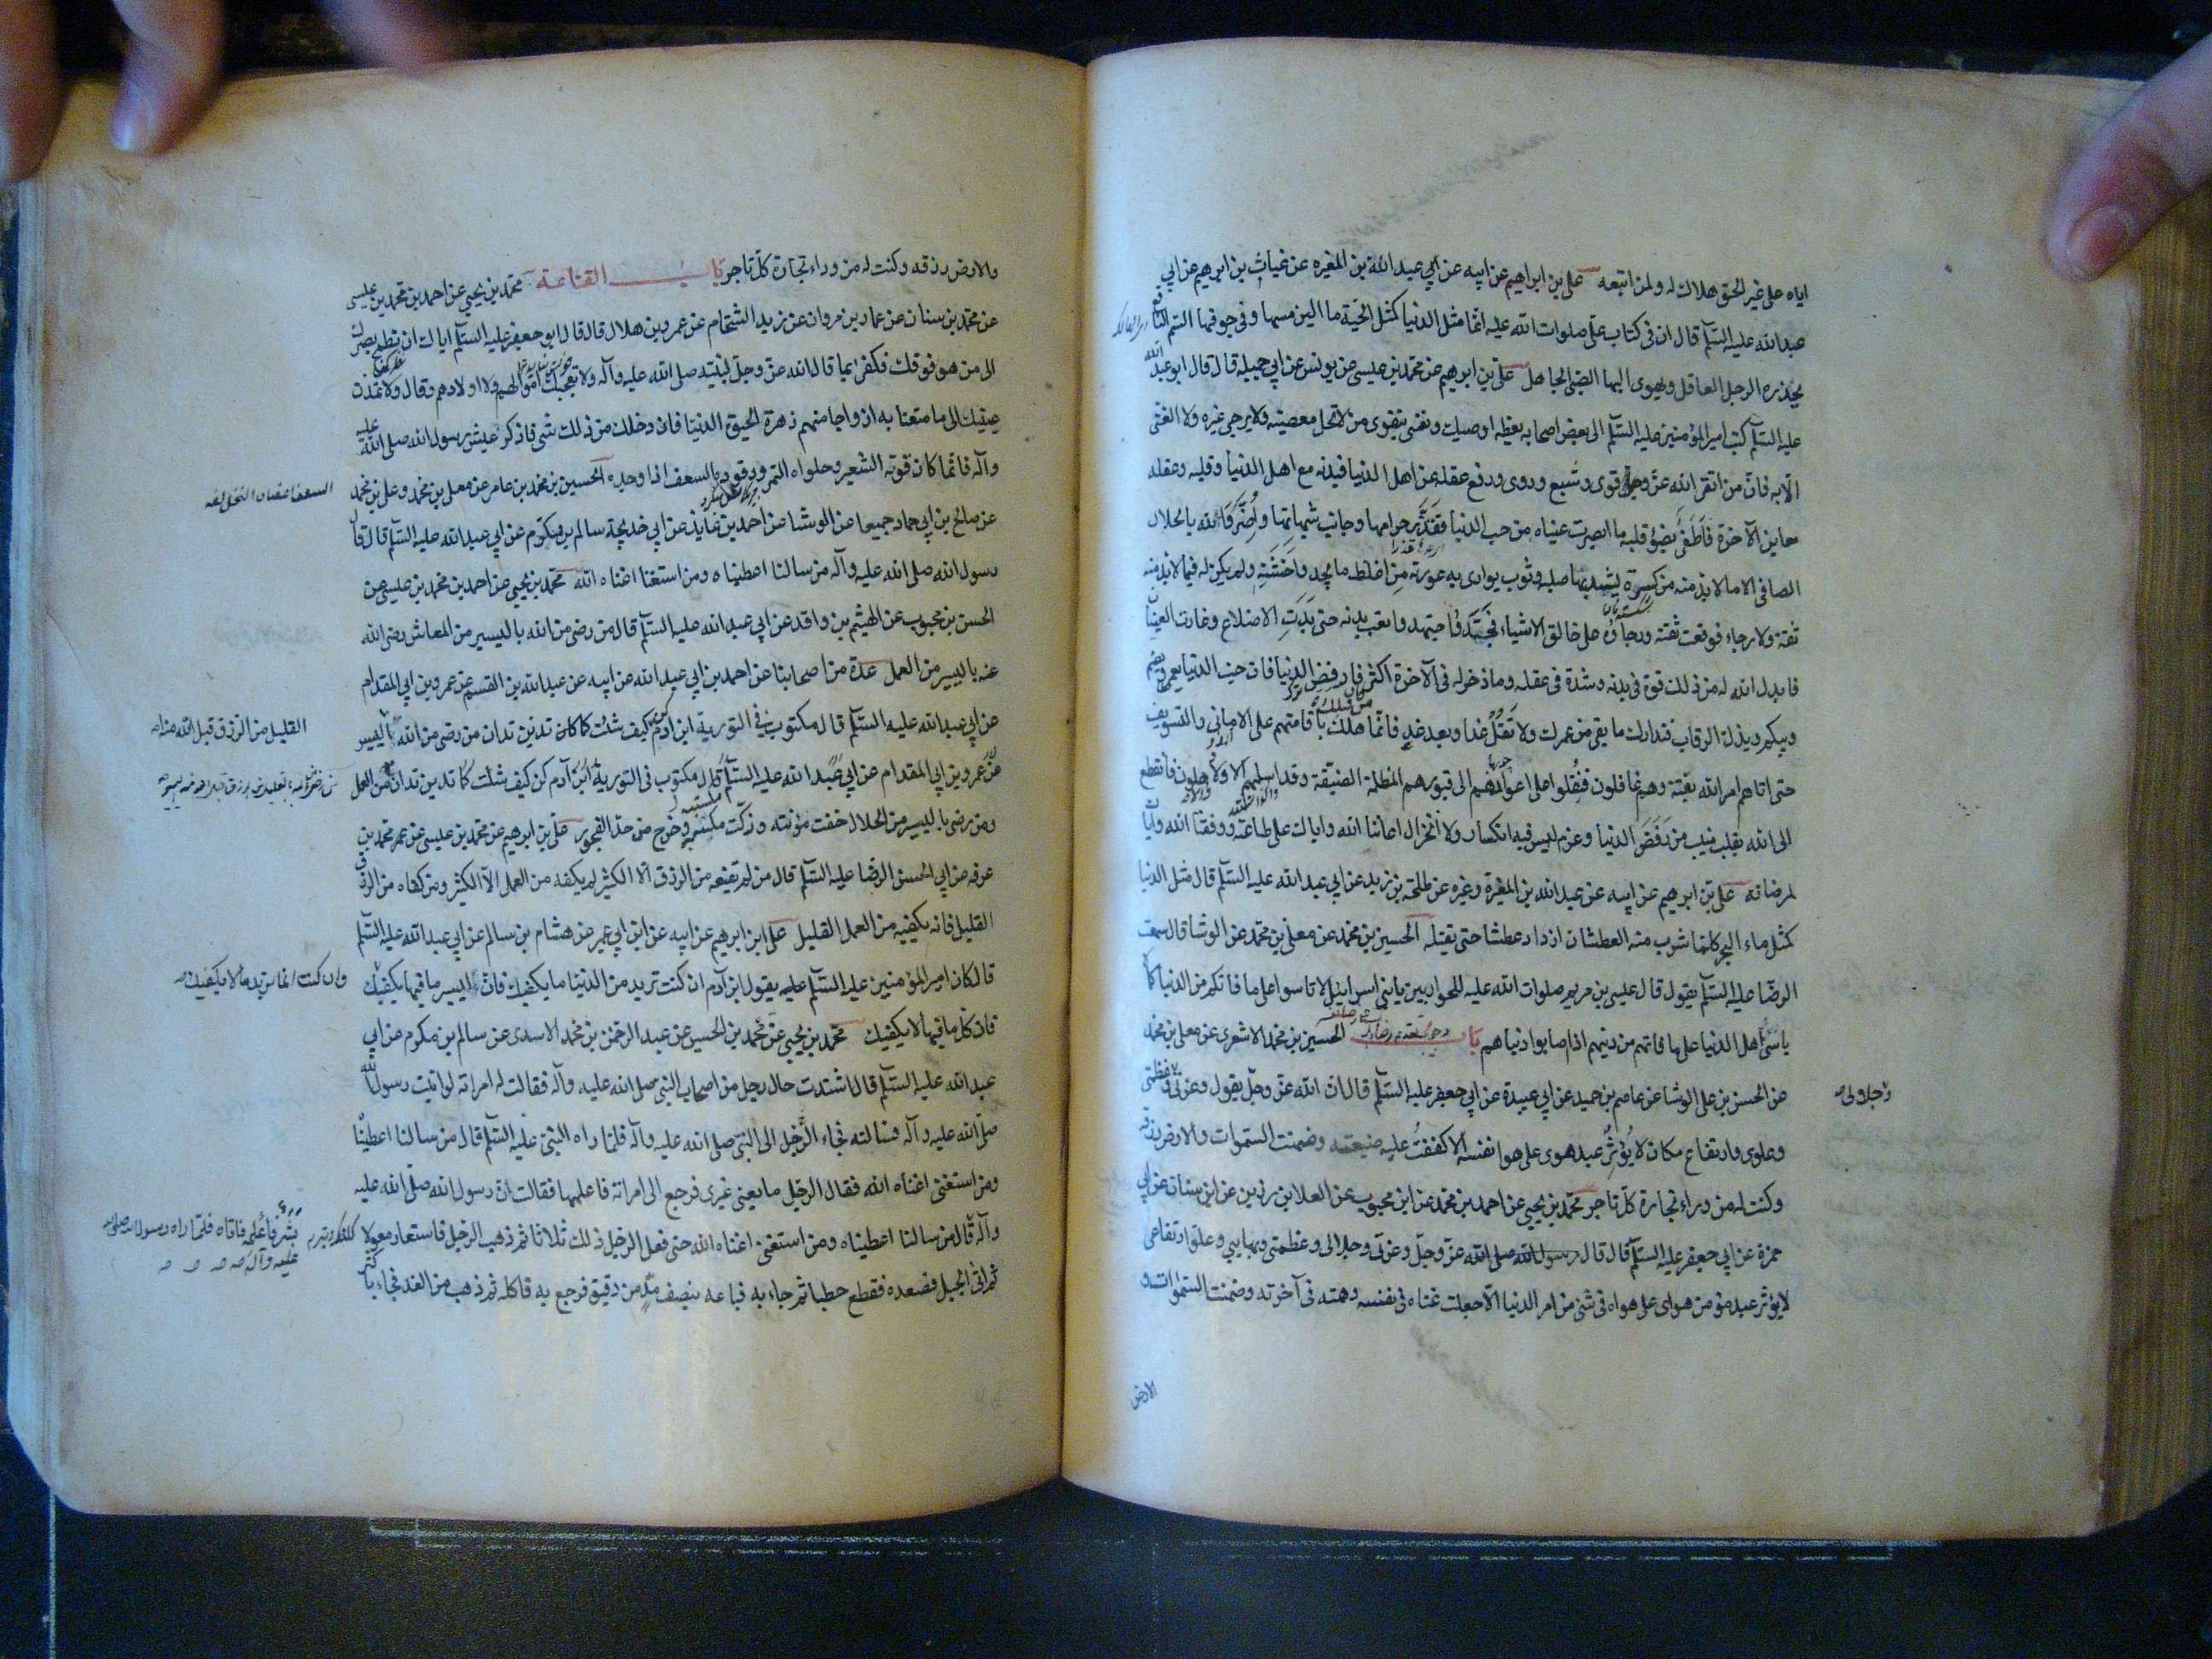 اياه على غير الحق هلاك له ولمن اتبعه على بن ابراهيم عن ابيه عن ابي عبد الله بن المغيره عن غياث بن ابرهيم عن ابي
عبد الله عليه السلم قال ان فى كتاب على صلوات الله عليه انما مثل الدنيا كمثل الحية ما الين مسها وفى جوفها السم الناقع
يحذره الرجل العاقل ويهوى اليها الصبى الجاهل على بن ابرهيم عن محمد بن عيسى عن يونس عن ابي جميلة قال قال ابو عبد الله
عليه السلم كتب امير المؤمنين عليه السلم الى بعض اصحابه يعظه اوصيك ونفسى بتقوى من لا تحل معصيته ولا يرجى غيره ولا الغنى
الا به فان من اتقى الله عز وجل قوى وشبع وروى ورفع عقله عن اهل الدنيا فبدنه مع اهل الدنيا وقلبه وعقله
معاين الآخرة فاطفئ بضوء قلبه ما ابصرت عيناه من حب الدنيا فقذر حرامها وجانب شبهاتها واضر والله بالحلال
الصافى الا ما لا بد منه من كسرة يشد بها صلبه وثوب يوارى به عورته من اغلظ ما يجد واخشنه ولم يكن له فيما لا بد منه
ثقة ولا رجاء فوقعت ثقته ورجاؤه على خالق الاشياء فجد واجتهد واتعب بدنه حتى بدت الاضلاع وغارت العينان
فابدل الله له من ذلك قوة فى بدنه وشدة فى عقله وما ذخر له فى الآخرة اكثر فارفض الدنيا فان حب الدنيا يعمى ويصم
ويبكم ويذل الرقاب فتدارك ما بقى من عمرك ولا تقل غدا وبعد غد فانما هلك من كان قبلك باقامتهم على الامانى والتسويف
حتى اتاهم امر الله بغتة وهم غافلون فنقلوا على اعوادهم الى قبورهم المظلمة الضيقة وقد اسلمهم الاولاد والاهلون فانقطع
الى الله بقلب منيب من رفض الدنيا وعزم ليس فيه انكسار ولا انخزال اعاننا الله واياك على طاعته ووفقنا الله واياك
لمرضاته على بن ابرهيم عن ابيه عن عبد الله بن المغيرة وغيره عن طلحة بن زيد عن ابي عبد الله عليه السلم قال مثل الدنيا
كمثل ماء البحر كلما شرب منه العطشان ازداد عطشا حتى يقتله الحسين بن محمد عن معلى بن محمد عن الوشا قال سمعت
الرضا عليه السلم يقول قال عيسى بن مريم صلوات الله عليه للحواريين يا بنى اسرائيل لا تاسوا على ما فاتكم من الدنيا كما
لا ياسى اهل الدنيا على ما فاتهم من دينهم اذا اصابوا دنياهم باب الحسين بن محمد الاشعرى عن معلى بن محمد
عن الحسن بن على الوشا عن عاصم بن حميد عن ابي عبيدة عن ابي جعفر عليه السلم قال ان الله عز وجل يقول وعزتى وعظمتى
وجلالى
وعلوى وارتفاع مكانى لا يؤثر عبد هوى على هوا نفسه الا كففت عليه ضيعته وضمنت السموات والارض رزقه
وكنت له من وراء تجارة كل تاجر محمد بن يحيى عن احمد بن محمد عن ابن محبوب عن العلا بن رزين عن ابن سنان عن ابي
حمزة عن ابي جعفر عليه السلم قال قال رسول الله صلى الله عز وجل وعزتى وجلالى وعظمتى وبهايى وعلو ارتفاعى
لا يؤثر عبد مؤمن هواى على هواه فى شئ من امر الدنيا الا جعلت غناه فى نفسه وهمته فى آخرته وضمنت السموات و
الارض
والارض رزقه وكنت له من وراء تجارة كل تاجر باب القناعة محمد بن يحيى عن احمد بن محمد بن عيسى
عن محمد بن سنان عن عمار بن مروان عن زيد الشحام عن عمرو بن هلال قال قال ابو جعفر عليه السلم اياك ان تطمح بصرك
الى من هو فوقك فكفى بما قال الله عز وجل لنبيه صلى الله عليه وآله ولا تعجبك اموالهم ولا اولادهم وقال ولا تمدن
عينيك الى ما متعنا به ازواجا منهم زهرة الحيوة الدنيا فان دخلك من ذلك شئ فاذكر عيش رسول الله صلى الله عليه
وآله فانما كان قوته الشعير وحلواه التمر ووقوده السعف اذا وجده الحسين بن محمد بن عامر عن معلى بن محمد وعلى بن محمد
عن صالح بن ابي حماد جميعا عن الوشا عن احمد بن عايذ عن ابي خديجة سالم بن مكرم عن ابي عبد الله عليه السلم قال قال
رسول الله صلى الله عليه وآله من سالنا اعطيناه ومن استغنا اغناه الله محمد بن يحيى عن احمد بن محمد بن عيسى عن
الحسن بن محبوب عن الهيثم بن واقد عن ابي عبد الله عليه السلم قال من رضى من الله باليسير من المعاش رضى الله
عنه باليسير من العمل عدة من اصحابنا عن احمد بن ابي عبد الله عن ابيه عن عبد الله بن القسم عن عمرو بن ابي المقدام
عن ابي عبد الله عليه السلم قال مكتوب فى التورية ابن آدم كن كيف شئت كما كان تدين تدان من رضى من الله باليسير
القليل من الرزق قبل الله منه
عن عمرو بن ابي المقدام عن ابي عبد الله عليه السلم قال مكتوب فى التورية ابن آدم كن كيف شئت كما تدين تدان من العمل
ومن رضى باليسير من الحلال خفت مؤنته وزكت مكسبه وخرج من حد الفجور على بن ابرهيم عن محمد بن عيسى عن محمد بن
عرفه عن ابي الحسن الرضا عليه السلم قال من لم يقنعه من الرزق الا الكثير لم يكفه من العمل الا الكثير ومن كفاه من الرزق
القليل فانه يكفيه من العمل القليل على ابن ابرهيم عن ابيه عن ابن ابي عمير عن هشام بن سالم عن ابي عبد الله عليه السلم
قال كان امير المؤمنين عليه السلم عليه يقول ابن آدم ان كنت تريد من الدنيا ما يكفيك فان اليسير ما فيها يكفيك
وان كنت انما تريد ما لا يكفيك
فان كل ما فيها لا يكفيك محمد بن يحيى عن محمد بن الحسين عن عبد الرحمن بن محمد الاسدى عن سالم بن مكرم عن ابي
عبد الله عليه السلم قال اشتدت حال رجل من اصحاب النبى صلى الله عليه وآله فقالت له امراته لو اتيت رسول الله
صلى الله عليه وآله فسالته فجاء الرجل الى النبى صلى الله عليه وآله فلما راه النبى عليه السلم قال من سالنا اعطيناه
ومن استغنى اغناه الله فقال الرجل ما يعنى غيرى فرجع الى امراته فاعلمها فقالت ان رسول الله صلى الله عليه
بشر فاعلمه فاتاه فلما راه رسول الله صلى الله
عليه وآله
وآله قال من سالنا اعطيناه ومن استغنى اغناه الله حتى فعل الرجل ذلك ثلاثا ثم ذهب الرجل فاستعار معولا
ثم اتى الجبل فصعده فقطع حطبا ثم جاء به فباعه بنصف مد من دقيق فرجع به فاكله ثم ذهب من الغد فجاء باكثر